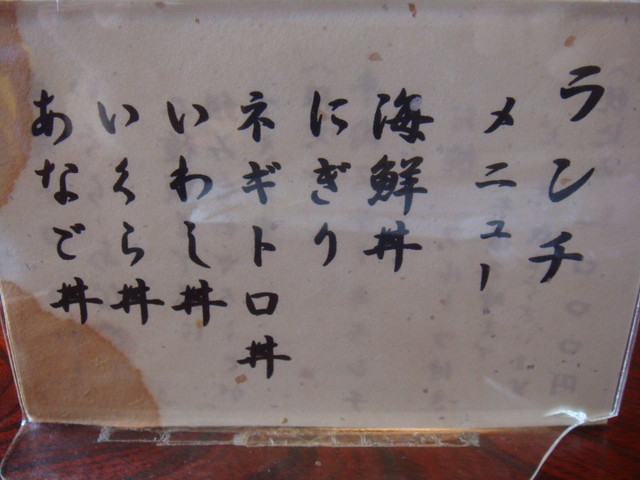 ランチ
メニュー
海鮮丼
にぎり
ネギトロ丼
いわし丼
いくら丼
あなご丼